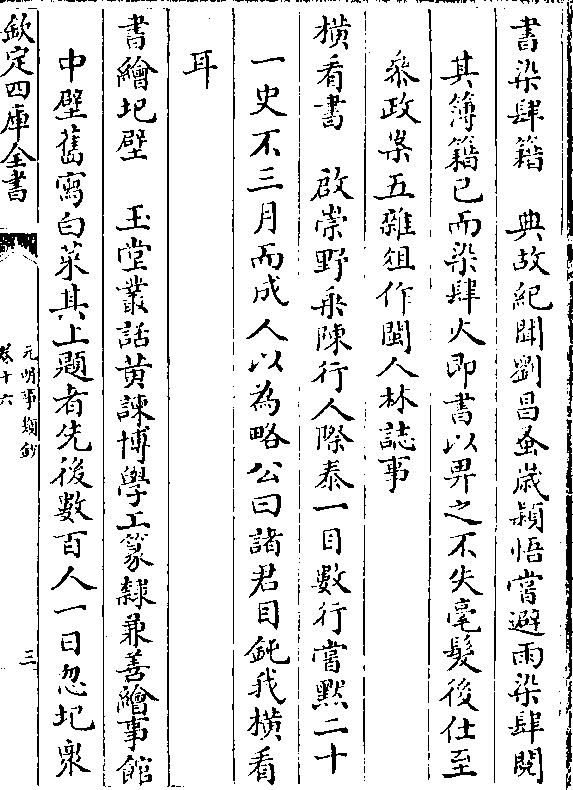 書染肆籍　典故紀聞劉昌蚤嵗穎悟嘗避雨染肆閲
其簿籍已而染肆火即書以畀之不失毫髮後仕至
叅政案五雜俎作閩人林誌事
横看書　啟崇野乗陳行人際泰一目數行嘗黙二十
一史不三月而成人以為略公曰諸君目鈍我横看
耳
書繪圮壁　玉堂叢話黄諫博學工篆隸兼善繪事館
中壁舊寫白菜其上題者先後數百人一日忽圮衆
欽定四庫全書
元明事類鈔
卷十六
三